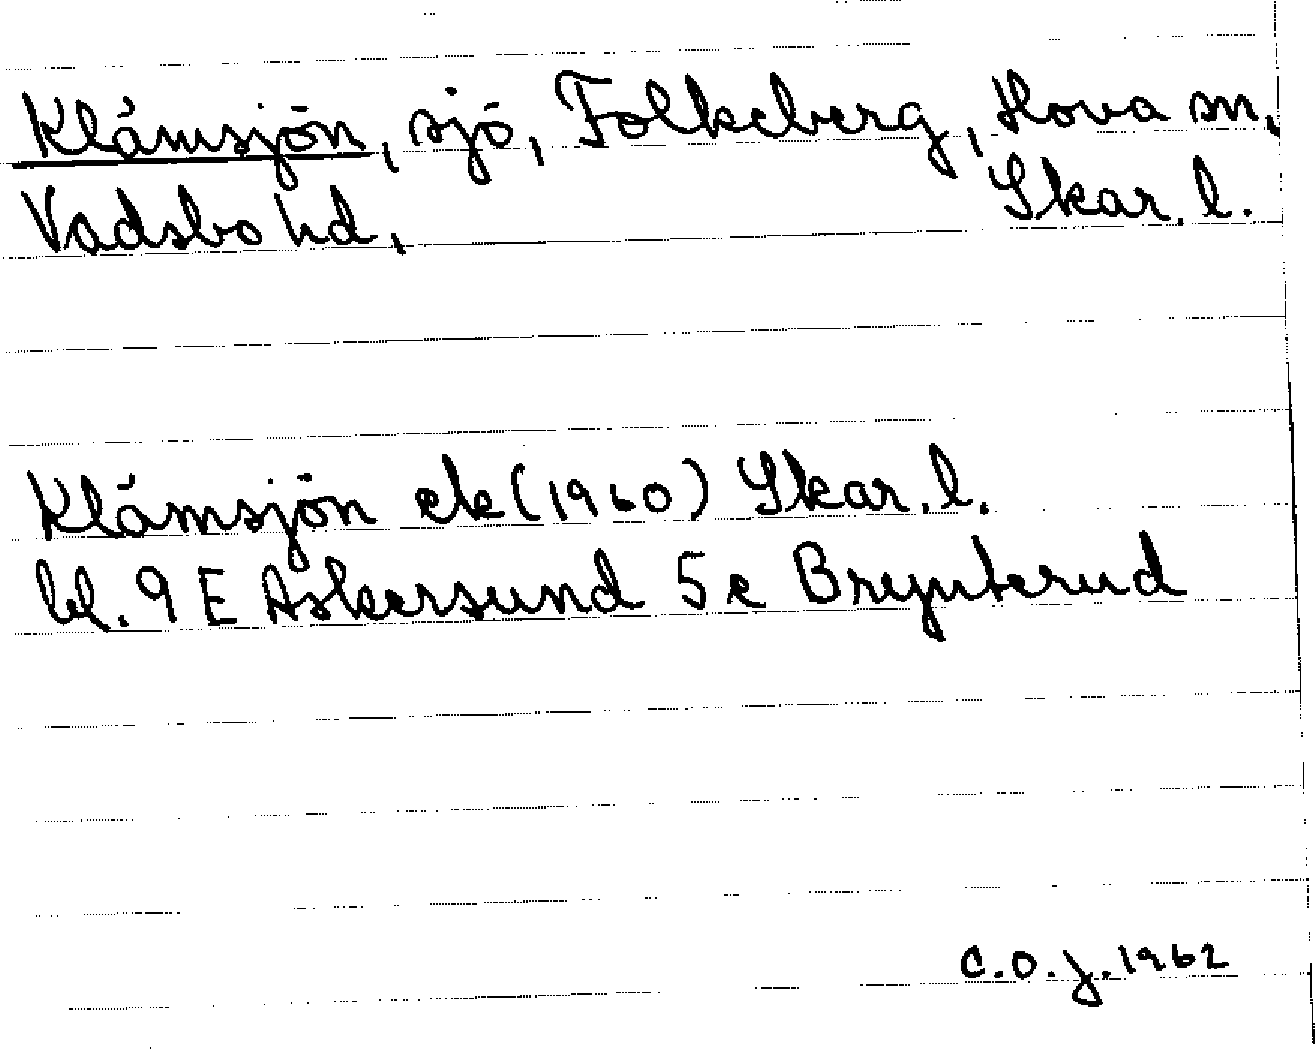 Klåmsjön, sjö, Folkeberg, Hova sn,
Vadsbo hd, Skar. l.
Klåmsjön ek (1960) Skar. l.
bl. 9 E Askersund 5e Brynterud
C.O.J. 1962